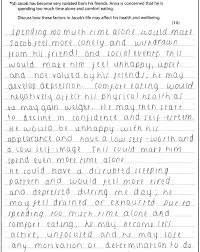 *(d) Jacob has become very isolated from his friends. Anna is concerned that he is
spending too much time alone and comfort eating.
Discuss how these factors in Jacob's life may affect his health and wellbeing.
(10)
Spending too much time alone would make
Jacob feel more lonely and withdrawn
from his friends and social events. This
would make him feel unhappy, upset
and not valued by his friends, he may
develop depression. Comfort eating would
negatively affect his physical health as
he may gain weight. He may then start
to decline in confidence and self-esteem.
He would be unhappy with his
appearance and have a low self-worth and
a low self-image. This could make him
spend even more time alone.
He could have a disrupted sleeping
pattern and would feel more tired
and depressed during the day, he
may feel drained or exhausted due to
spending too much time alone and
comfort eating. He may become less
active, unfocused and he may lose
any motivation or determination to do